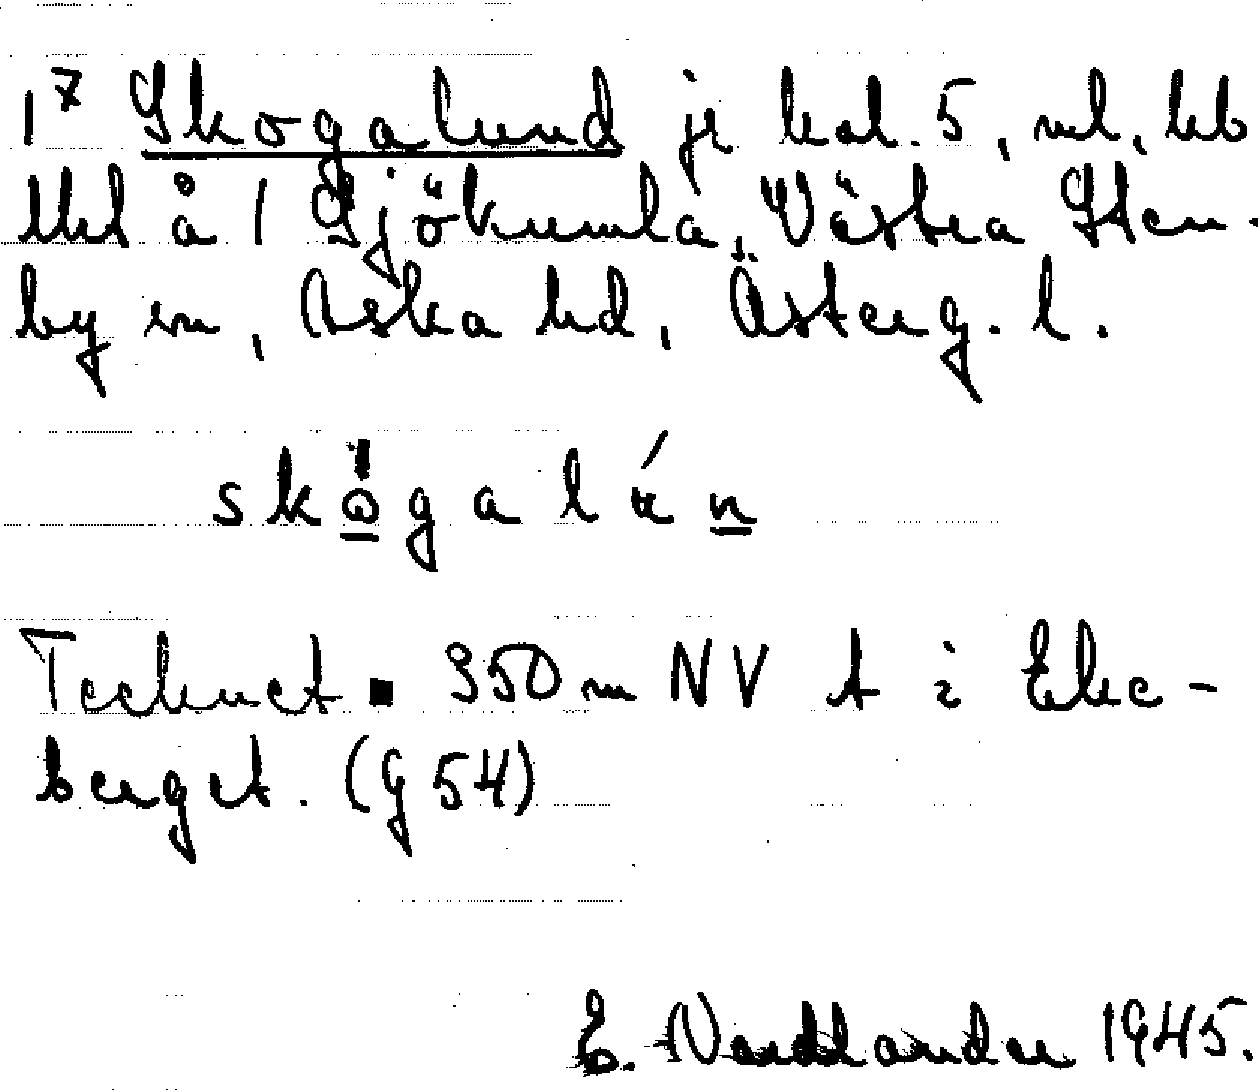 1⁷ Skogalund je kal. 5, ml, hb
lht å 1 Sjökumla, Västra Sten-
by sn, Aska hd, Österg. l.
skȯ̲galún̲
Tecknet ▪ 350 m NV t i Eke-
berget. (g 54)
E. Nordlander 1945.